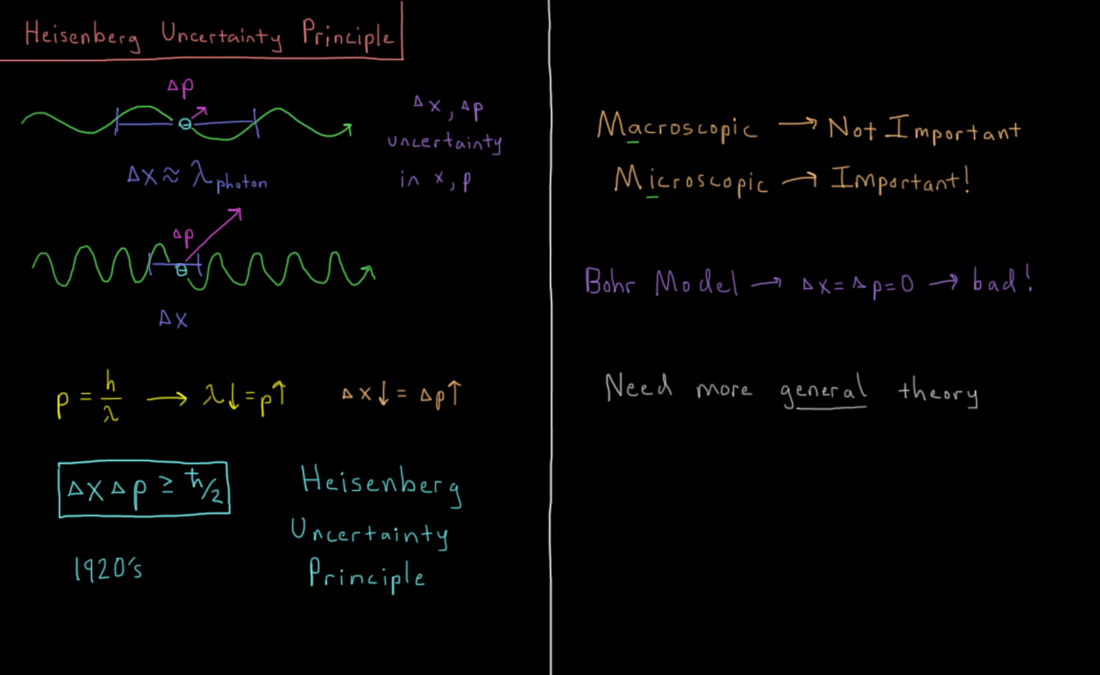 Heisenberg Uncertainty Principle
Δp
Δx ≈ λphoton
Δx, Δp
uncertainty
in x, p
Δp
Δx
p = h/λ → λ↓ = p↑
Δx↓ = Δp↑
ΔxΔp ≥ ħ/2
1920's
Heisenberg
Uncertainty
Principle
Macroscopic → Not Important
Microscopic → Important!
Bohr Model → Δx = Δp = 0 → bad!
Need more general theory